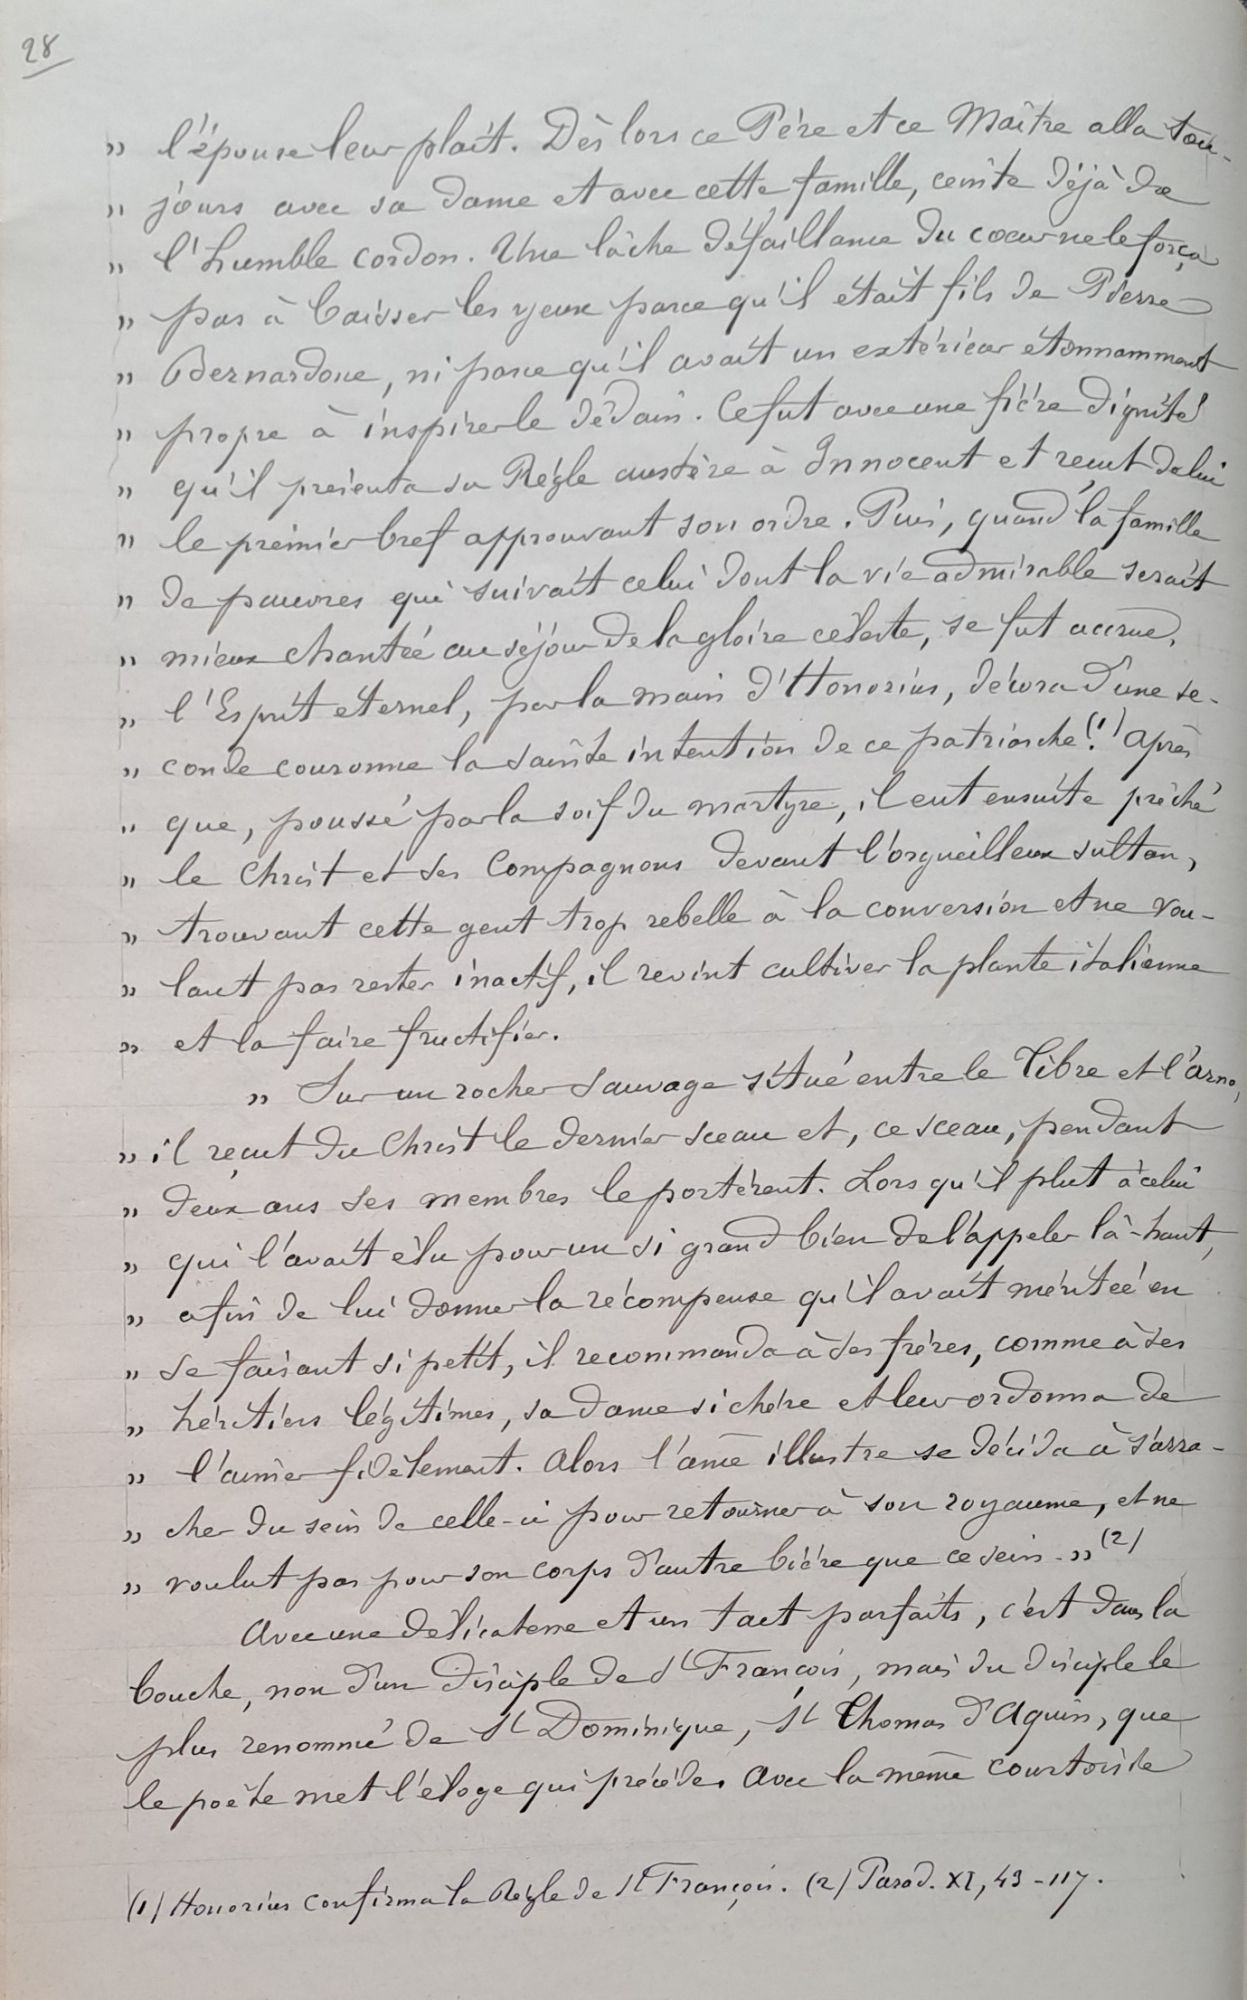 28
" l'épouse leur plaît. Dès lors ce Père et ce Maître alla tou-
" jours avec sa dame et avec cette famille, ceinte déjà de
" l'humble cordon. Une lâche défaillance du cœur ne le força
" pas à baisser les yeux parce qu'il était fils de Pierre
" Bernardone, ni parce qu'il avait un extérieur étonnamment
" propre à inspirer le dédain. Ce fut avec une fière dignité
" qu'il présenta sa Règle austère à Innocent et reçut de lui
" le premier bref approuvant son ordre. Puis, quand la famille
" de pauvres qui suivait celui dont la vie admirable serait
" mieux chantée au séjour de la gloire céleste, se fut accrue,
" l'Esprit éternel, par la main d'Honorius, décora d'une se-
" conde couronne la sainte intention de ce patriarche.(1) Après
" que, poussé par la soif du martyre, il eut ensuite prêché
" le Christ et ses Compagnons devant l'orgueilleux sultan,
" trouvant cette gent trop rebelle à la conversion et ne vou-
" lant pas rester inactif, il revint cultiver la plante italienne
" et la faire fructifier.
" Sur un rocher sauvage situé entre le Tibre et l'Arno,
" il reçut du Christ le dernier sceau et, ce sceau, pendant
" deux ans ses membres le portèrent. Lorsqu'il plut à celui
" qui l'avait élu pour un si grand bien de l'appeler là-haut,
" afin de lui donner la récompense qu'il avait méritée en
" se faisant si petit, il recommanda à ses frères, comme à ses
" héritiers légitimes, sa dame si chère et leur ordonna de
" l'aimer fidèlement. Alors l'âme illustre se décida à s'arra-
" cher du sein de celle-ci pour retourner à son royaume, et ne
" voulut pas pour son corps d'autre bière que ce sein. " (2)
Avec une délicatesse et un tact parfaits, c'est dans la
bouche, non d'un disciple de St François, mais du disciple le
plus renommé de St Dominique, St Thomas d'Aquin, que
le poète met l'éloge qui précède. Avec la même courtoisie
(1) Honorius confirma la Règle de St François. (2) Parad. XI, 43-117.